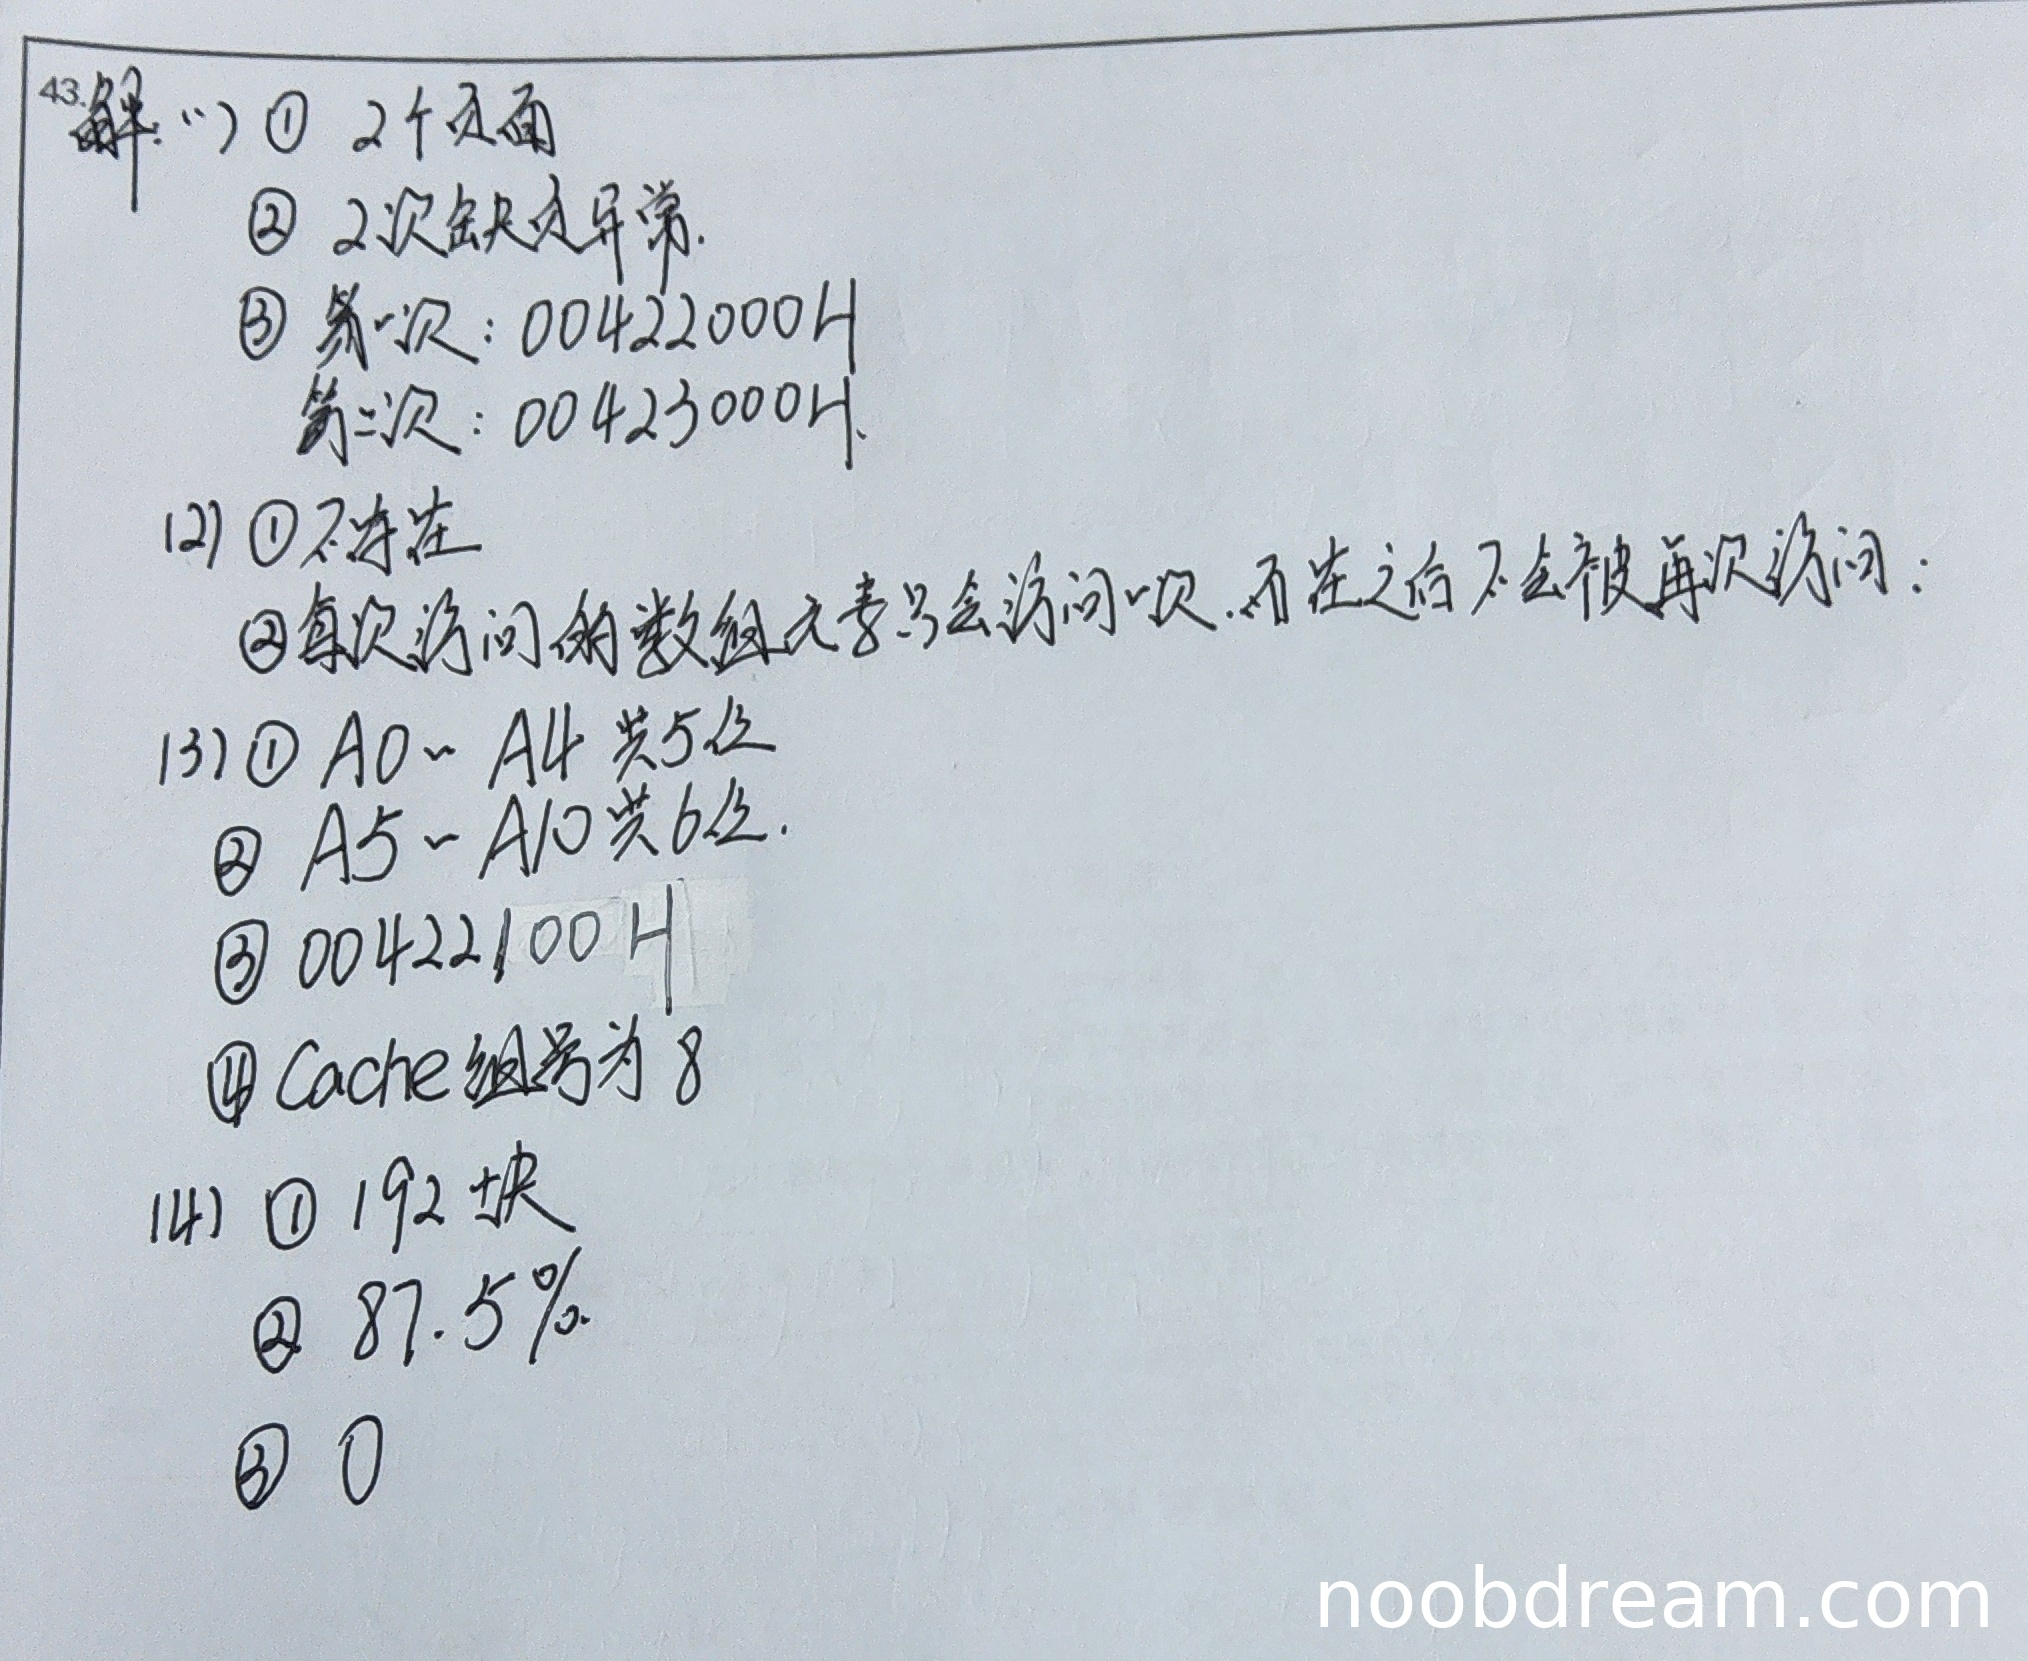 43.
解:(1) ① 2个页面
② 2次缺页异常.
③ 第一次: 00422000H
第二次: 00423000H.
(2) ①不存在
②每次访问的数组元素只会访问一次.而在之后不会被再次访问;
(3) ① A0~A4 共5位
② A5~A10共6位.
③ 00422100H
④ Cache组号为 8
(4) ① 192 块
② 87.5%.
③ 0
noobdream.com